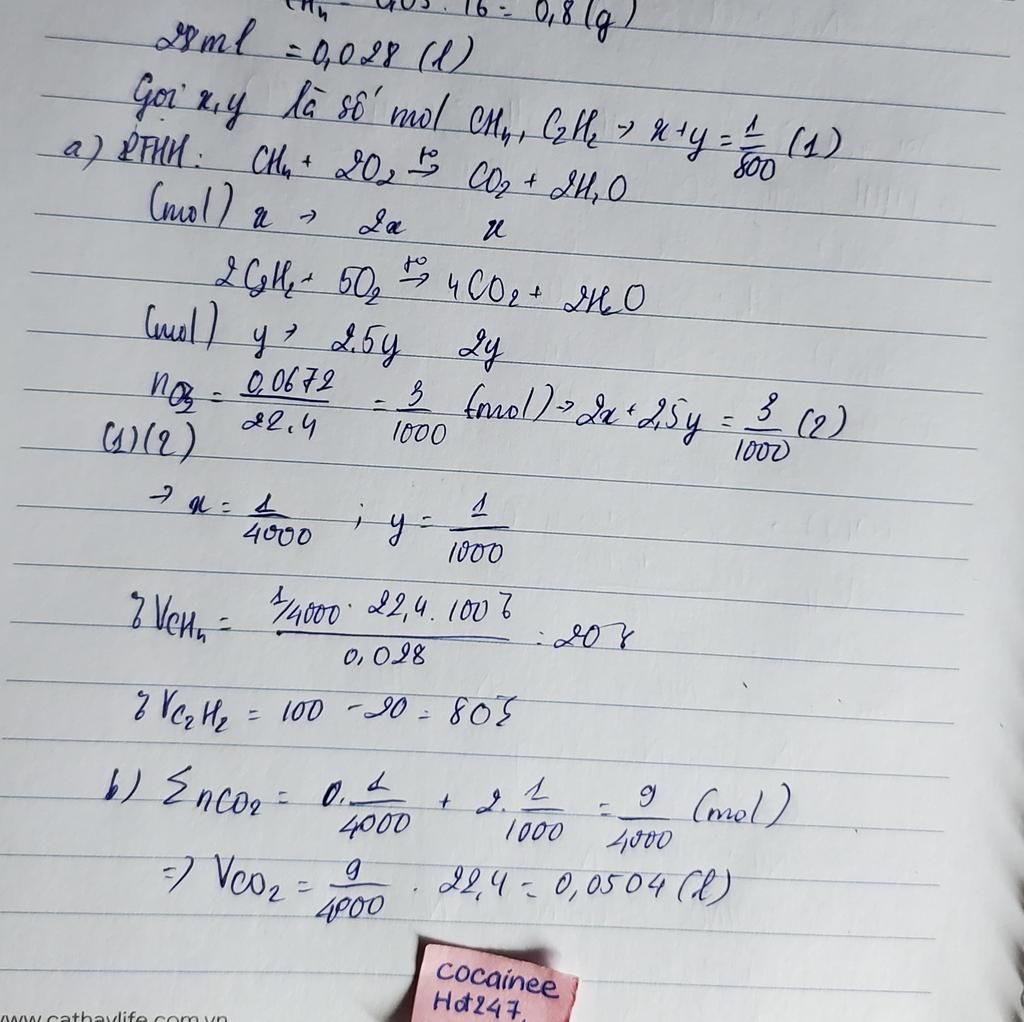 CH4 = 0,05 . 16 = 0,8 (g)
28ml = 0,028 (l)
Gọi x,y là số mol CH4, C2H2 → x+y = 1/800 (1)
a) PTHH: CH4 + 2O2 t° → CO2 + 2H2O
(mol) x → 2x x
2C2H2 + 5O2 t° → 4CO2 + 2H2O
(mol) y → 2,5y 2y
nO2 = 0,0672/22,4 = 3/1000 (mol) → 2x + 2,5y = 3/1000 (2)
(1)(2)
→ x = 1/4000 ; y = 1/1000
%VCH4 = 1/4000 . 22,4 . 100% / 0,028 = 20%
%VC2H2 = 100 - 20 = 80%
b) ΣnCO2 = 0. 1/4000 + 2. 1/1000 = 9/4000 (mol)
=> VCO2 = 9/4000 . 22,4 = 0,0504 (l)
cocainee
Hdt247.
www.cathaylife.com.vn